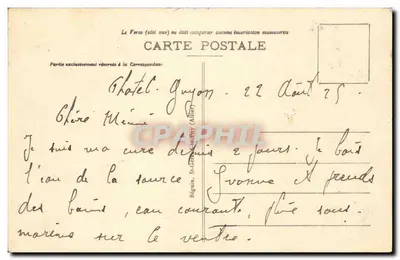 Le Verso (côté vue) ne doit comporter aucune inscription manuscrite
CARTE POSTALE
Partie exclusivement réservée à la Correspondance
Chatel-Guyon. 22 Août 25.
Chère Mémé
Je suis ma cure depuis 2 jours. Je bois
l'eau de la source Yvonne et prends
des bains, eau courante, sous-
marins sur le ventre.
CPARAMA